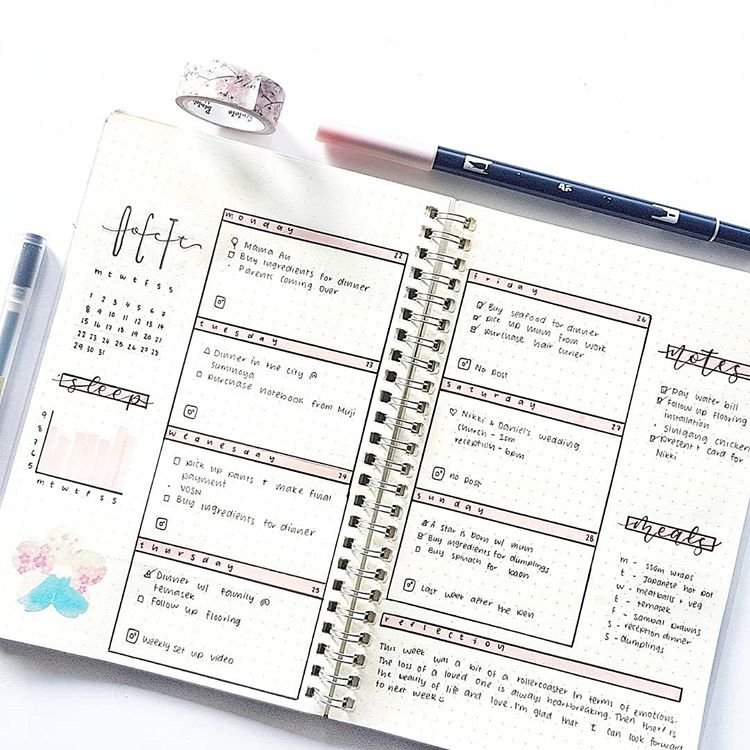 Oct
m t w t f s s
1 2 3 4 5 6 7
8 9 10 11 12 13 14
15 16 17 18 19 20 21
22 23 24 25 26 27 28
29 30 31
sleep
9
8
7
6
5
m t w t f s s
monday
22
Mama An
Buy ingredients for dinner
- Parents coming over
tuesday
23
Dinner in the city @
sumnoya
purchase notebook from Muji
wednesday
24
pick up pants + make final
payment
- VOSN
Buy ingredients for dinner
thursday
25
Dinner w/ family @
temasek
Follow up flooring
weekly set up video
friday
26
Buy seafood for dinner
pick up mum from work
purchase hair curler
No post
saturday
27
♡ Nikki & Daniel's wedding
church - 1pm
reception - 6pm
no post
sunday
28
A star is born w/ mum
Buy ingredients for dumplings
Buy spinach for
Last week after the pen
reflection
This week was a bit of a rollercoaster in terms of emotions.
The loss of a loved one is always heartbreaking. Then there is
the beauty of life and love. I'm glad that I can look forward
to next week
notes
Pay water bill
Follow up flooring
installation
- Sinigang chicken
Present + card for
Nikki
meals
m - ssam wraps
t - Japanese hot pot
w - meatballs + veg
t - temasek
f - sambal prawns
s - reception dinner
s - dumplings